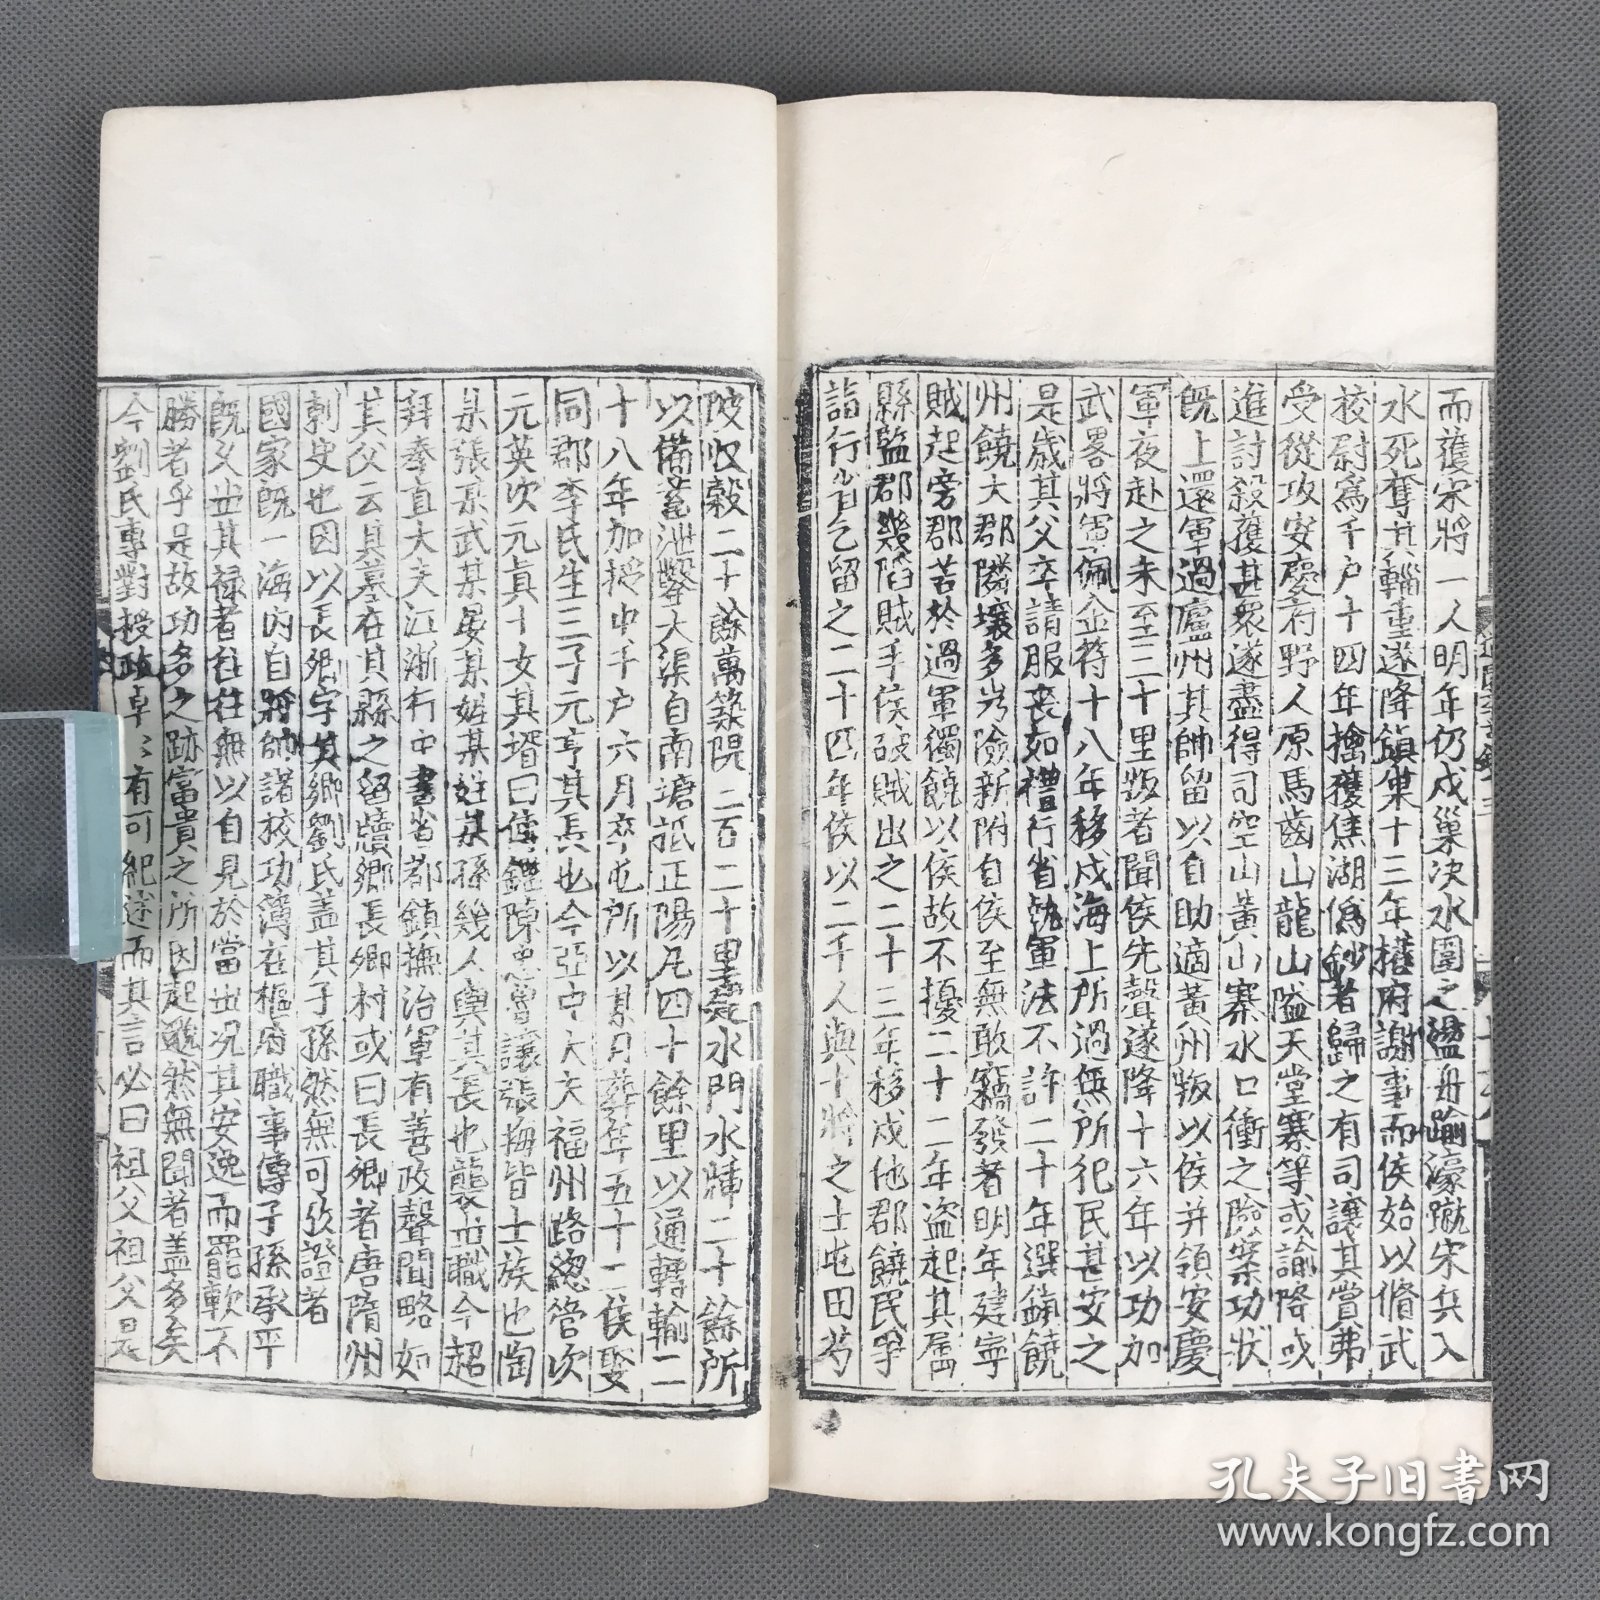 而獲宋將一人明年仍戍巢決水圍之盪舟踰濠蹴宋兵入
水死奪其輜重遂降鎮巢十三年攉府謝事而侯始以脩武
校尉為千戶十四年擒獲焦湖偽鈔者歸之有司讓其賞弗
受從攻安慶府野人原馬齒山龍山隘天堂寨等或諭降或
進討殺獲甚衆遂盡得司空山黃山寨水口衝之險案功狀
既上還軍過廬州其帥留以自助適黃州叛以侯并領安慶
軍夜赴之未至三十里叛者聞侯先聲遂降十六年以功加
武畧將軍佩金符十八年移戍海上所過無所犯民甚安之
是歲其父卒請服喪如禮行省執軍法不許二十年選鎮饒
州饒大郡隣壤多岩險新附自侯至無敢竊發者明年建寧
賊起旁郡苦於過軍獨饒以侯故不擾二十二年盜起其屬
縣監郡幾陷賊手侯破賊出之二十三年移戍他郡饒民爭
詣行省乞留之二十四年侯以二千人與十將之士屯田芍
陂收穀二十餘萬築隄二百二十里建水門水牐二十餘所
以備蓄泄鑿大渠自南塘抵正陽凡四十餘里以通轉輸二
十八年加授中千戶六月卒屯所以某月葬年五十二侯娶
同郡李氏生三子元亨其長也今亞中大夫福州路總管次
元英次元真十女其壻曰 陳忠 讓張梅皆士族也陶
某張某武某晏某姚某姓某孫幾人輿其長也襲世職今超
拜奉直大夫江浙行中書省都鎮撫治軍有善政聲聞略如
其父云其墓在其縣之留犢鄉長卿村或曰長卿者唐隋州
刺史也因以長卿字其鄉劉氏盖其子孫然無可攷證者
國家既一海內自將帥諸校功簿在樞府職事傳子孫承平
既久世其祿者往往無以自見於當世况其安逸而罷軟不
勝者乎是故功名之跡富貴之所因起邈然無聞者盖多矣
今劉氏專對授政卓卓有可紀述而其言必曰祖父祖父是
孔夫子旧書网
www.kongfz.com